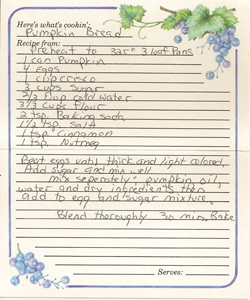 Here's what's cookin':
Pumpkin Bread
Recipe from:
Preheat to 325° 3 loaf Pans
1 can Pumpkin
4 eggs
1 cup crisco
3 cups Sugar
2/3 cup cold water
3 1/3 cups flour
2 tsp. Baking soda
1 1/2 tsp. Salt
1 tsp. Cinnamon
1 tsp. Nutmeg
Beat eggs until thick and light colored,
Add sugar and mix well
mix seperately: pumpkin, oil,
water and dry ingredients then
add to egg and sugar mixture.
Blend thoroughly 30 min. Bake
Serves: